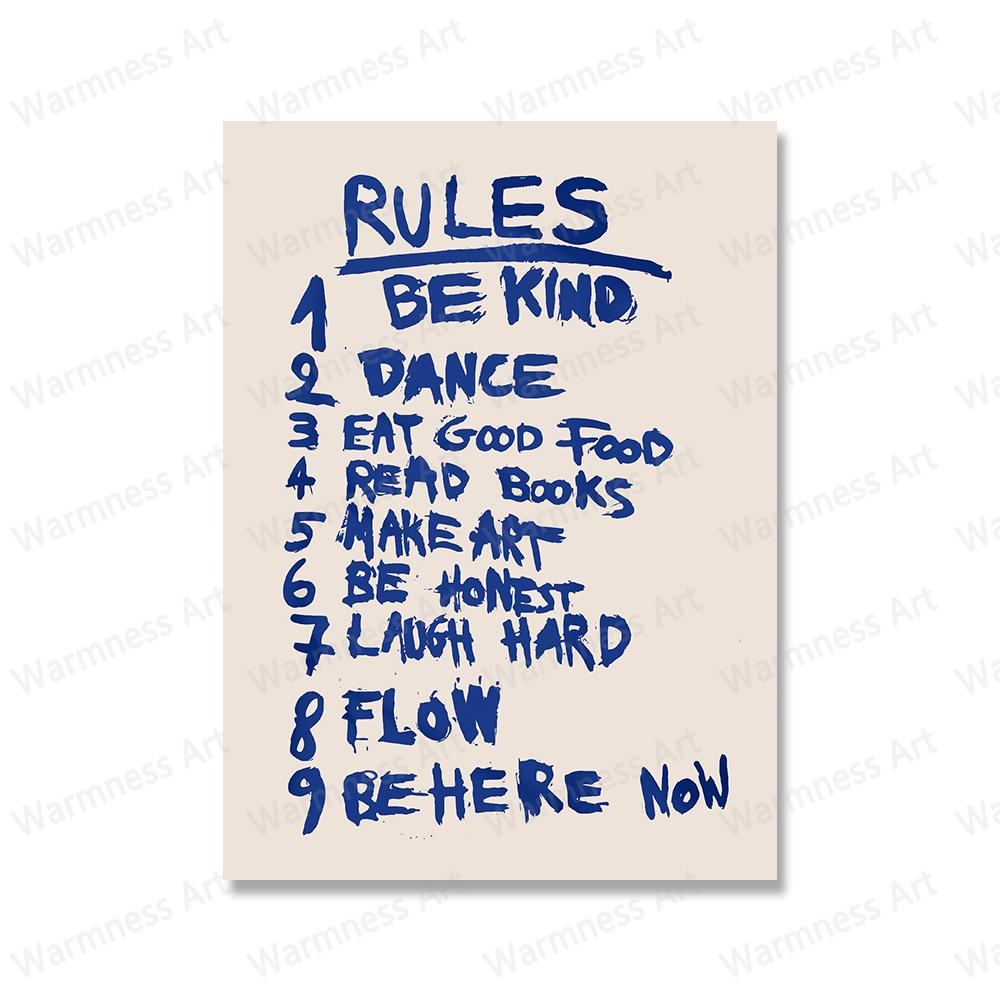 RULES
1 BE KIND
2 DANCE
3 EAT GOOD FOOD
4 READ BOOKS
5 MAKE ART
6 BE HONEST
7 LAUGH HARD
8 FLOW
9 BE HERE NOW
Warmness Art